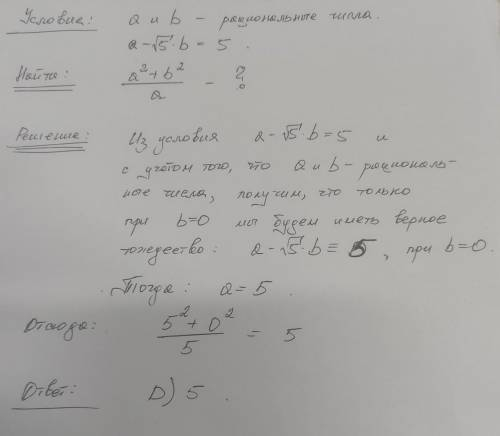 Условие: a и b – рациональные числа.
a – √5 · b = 5.
Найти: (a² + b²)/a – ?
Решение: Из условия a – √5 · b = 5 и
с учётом того, что a и b – рациональ-
ные числа, получим, что только
при b=0 мы будем иметь верное
тождество: a – √5 · b ≡ 5, при b=0.
Тогда: a = 5.
Отсюда: (5² + 0²)/5 = 5
Ответ: D) 5.